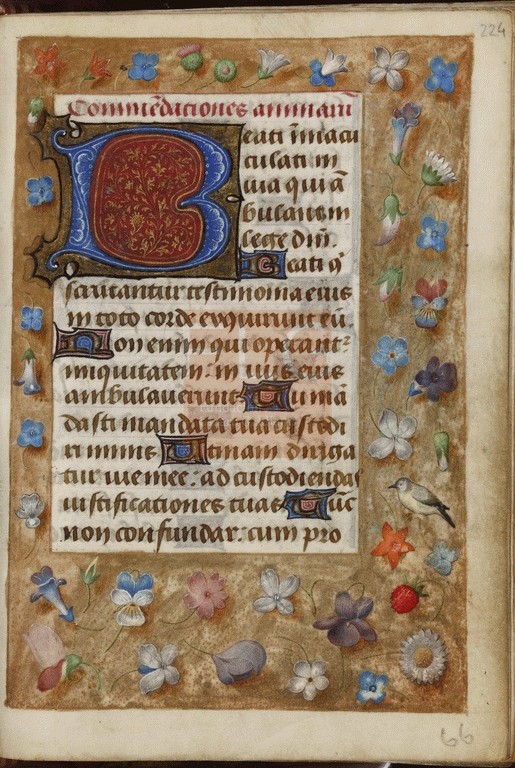 224
Commēdationes animarū
Beati īmacu
culati in
uia qui ā
bulant in
lege dni.
Beati q̄
scrutantur testimonia eius
in toto corde exquirunt eū.
Non enim qui operant᷑
iniquitatem: in uiis eius
ambulauerunt. Tu mā
dasti mandata tua custodi
ri nimis. Utinam diriga
tur uie mee: ad custodiendas
iustificationes tuas. Tūc
non confundar: cum pro
66